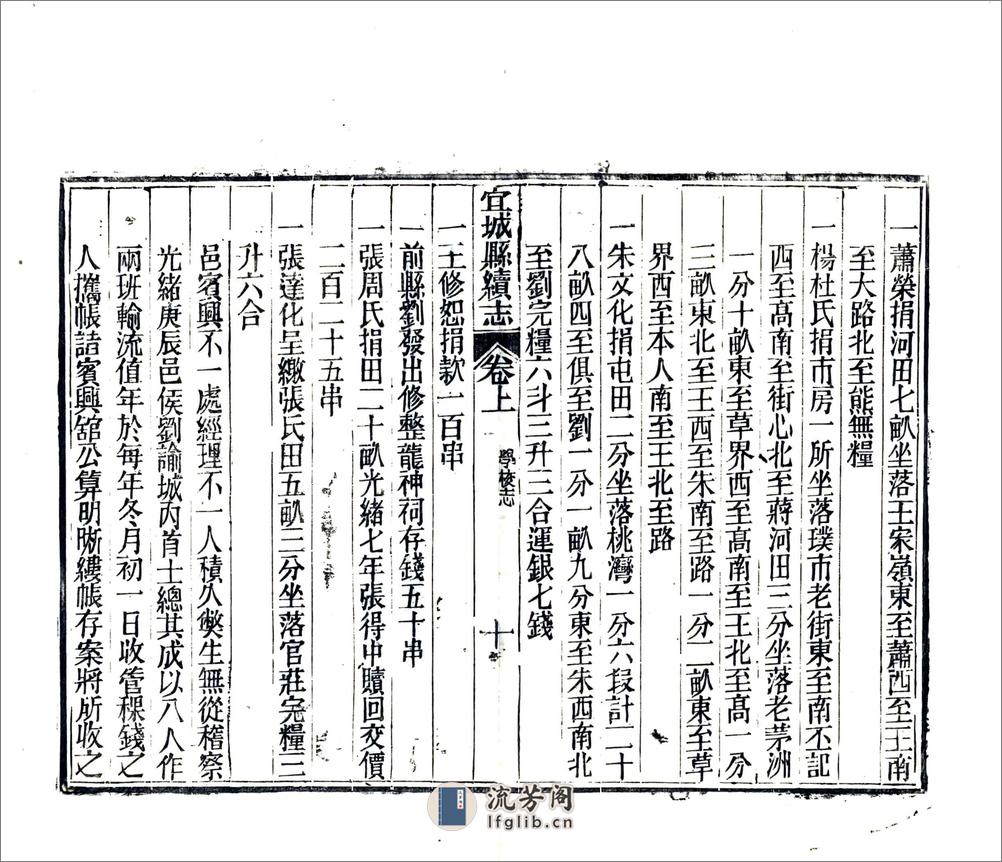 一蕭榮捐河田七畝坐落王宋嶺東至蕭西至王南
至大路北至熊無糧
一楊杜氏捐市房一所坐落璞市老街東至南丕記
西至高南至街心北至蔣河田三分坐落老茅洲
一分十畝東至草界西至高南至王北至高一分
三畝東北至王西至朱南至路一分二畝東至草
界西至本人南至王北至路
一朱文化捐屯田二分坐落桃灣一分六段計二十
八畝四至俱至劉一分一畝九分東至朱西南北
至劉完糧六斗三升三合運銀七錢
宜城縣續志 卷上 學校志 十
一王修恕捐款一百串
一前縣劉發出修整龍神祠存錢五十串
一張周氏捐田二十畝光緒七年張得中贖回交價
二百二十五串
一張達化呈繳張氏田五畝三分坐落官莊完糧三
升六合
邑賓興不一處經理不一人積久獘生無從稽察
光緒庚辰邑侯劉諭城內首士總其成以八人作
兩班輪流值年於每年冬月初一日收管稞錢之
人攜帳詣賓興舘公算明晰縷帳存案將所收之
流芳阁
lfglib.cn